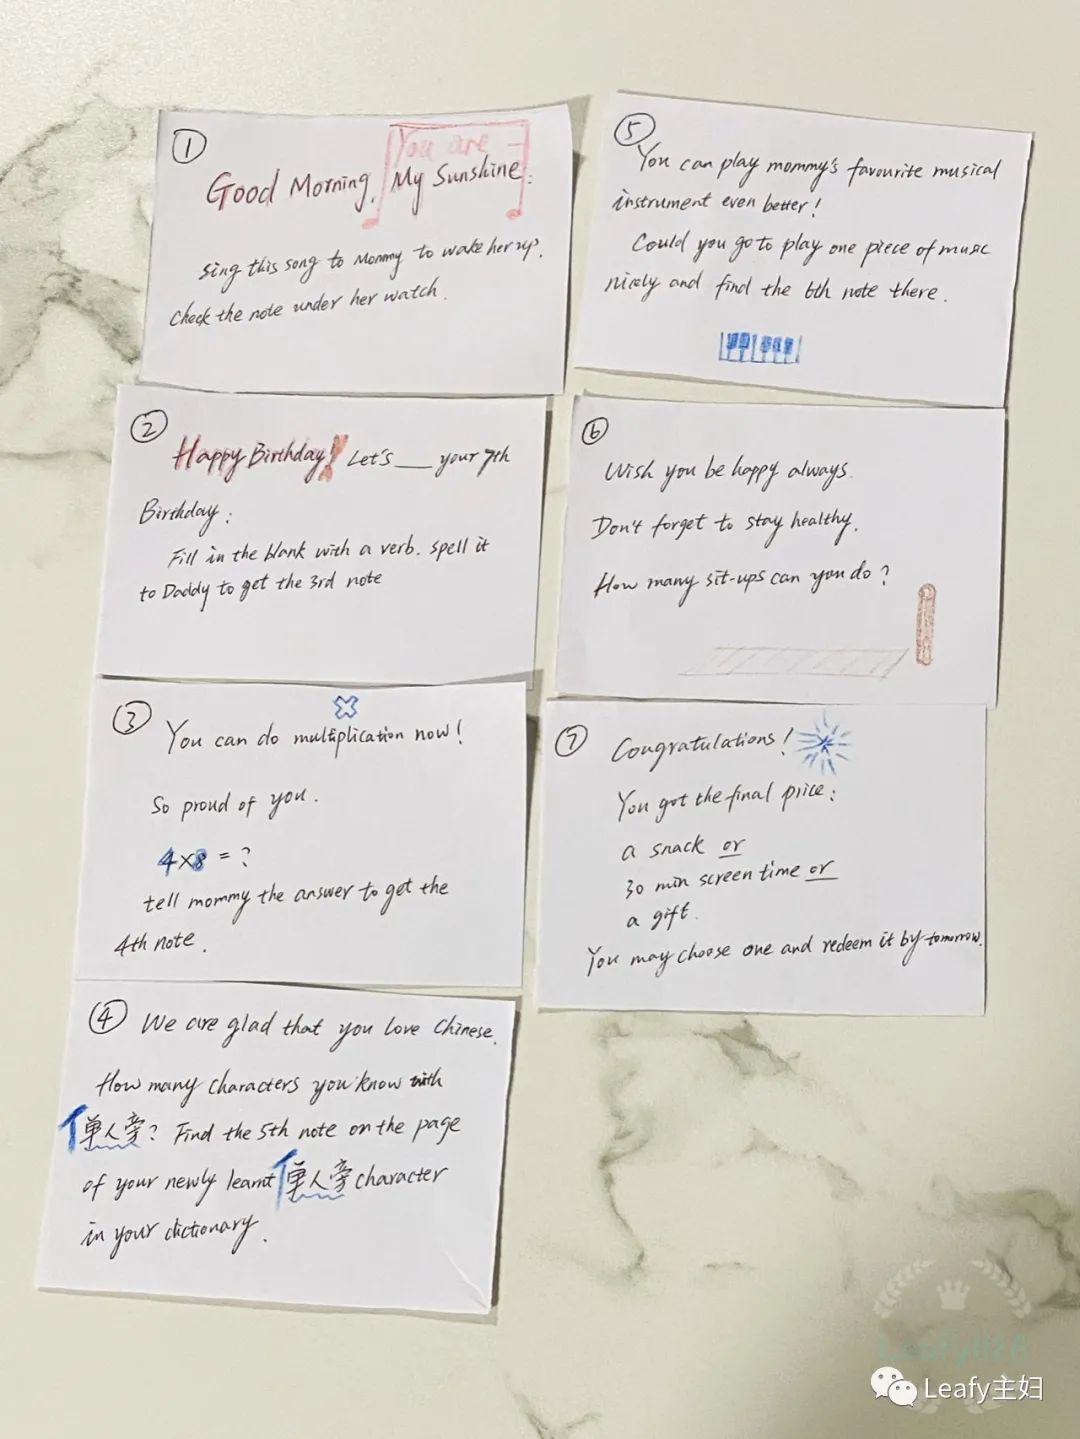 ①
You are
Good Morning, My Sunshine:
Sing this song to Mommy to wake her up.
Check the note under her watch.
②
Happy Birthday! Let's ___ your 7th
Birthday:
Fill in the blank with a verb. spell it
to Daddy to get the 3rd note
③
You can do multiplication now!
So proud of you.
4×8 = ?
tell mommy the answer to get the
4th note.
④ We are glad that you love Chinese.
How many characters you know with
亻单人旁? Find the 5th note on the page
of your newly learnt 亻单人旁 character
in your dictionary.
⑤
You can play mommy's favourite musical
instrument even better!
Could you go to play one piece of music
nicely and find the 6th note there.
⑥
Wish you be happy always.
Don't forget to stay healthy.
How many sit-ups can you do?
⑦
Congratulations!
You got the final price:
a snack or
30 min screen time or
a gift.
You may choose one and redeem it by tomorrow.
Leafy主妇